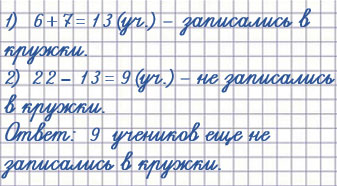 1) 6+7=13(уч.) – записались в
кружки.
2) 22 – 13 = 9 (уч.) – не записались
в кружки.
Ответ: 9 учеников еще не
записались в кружки.